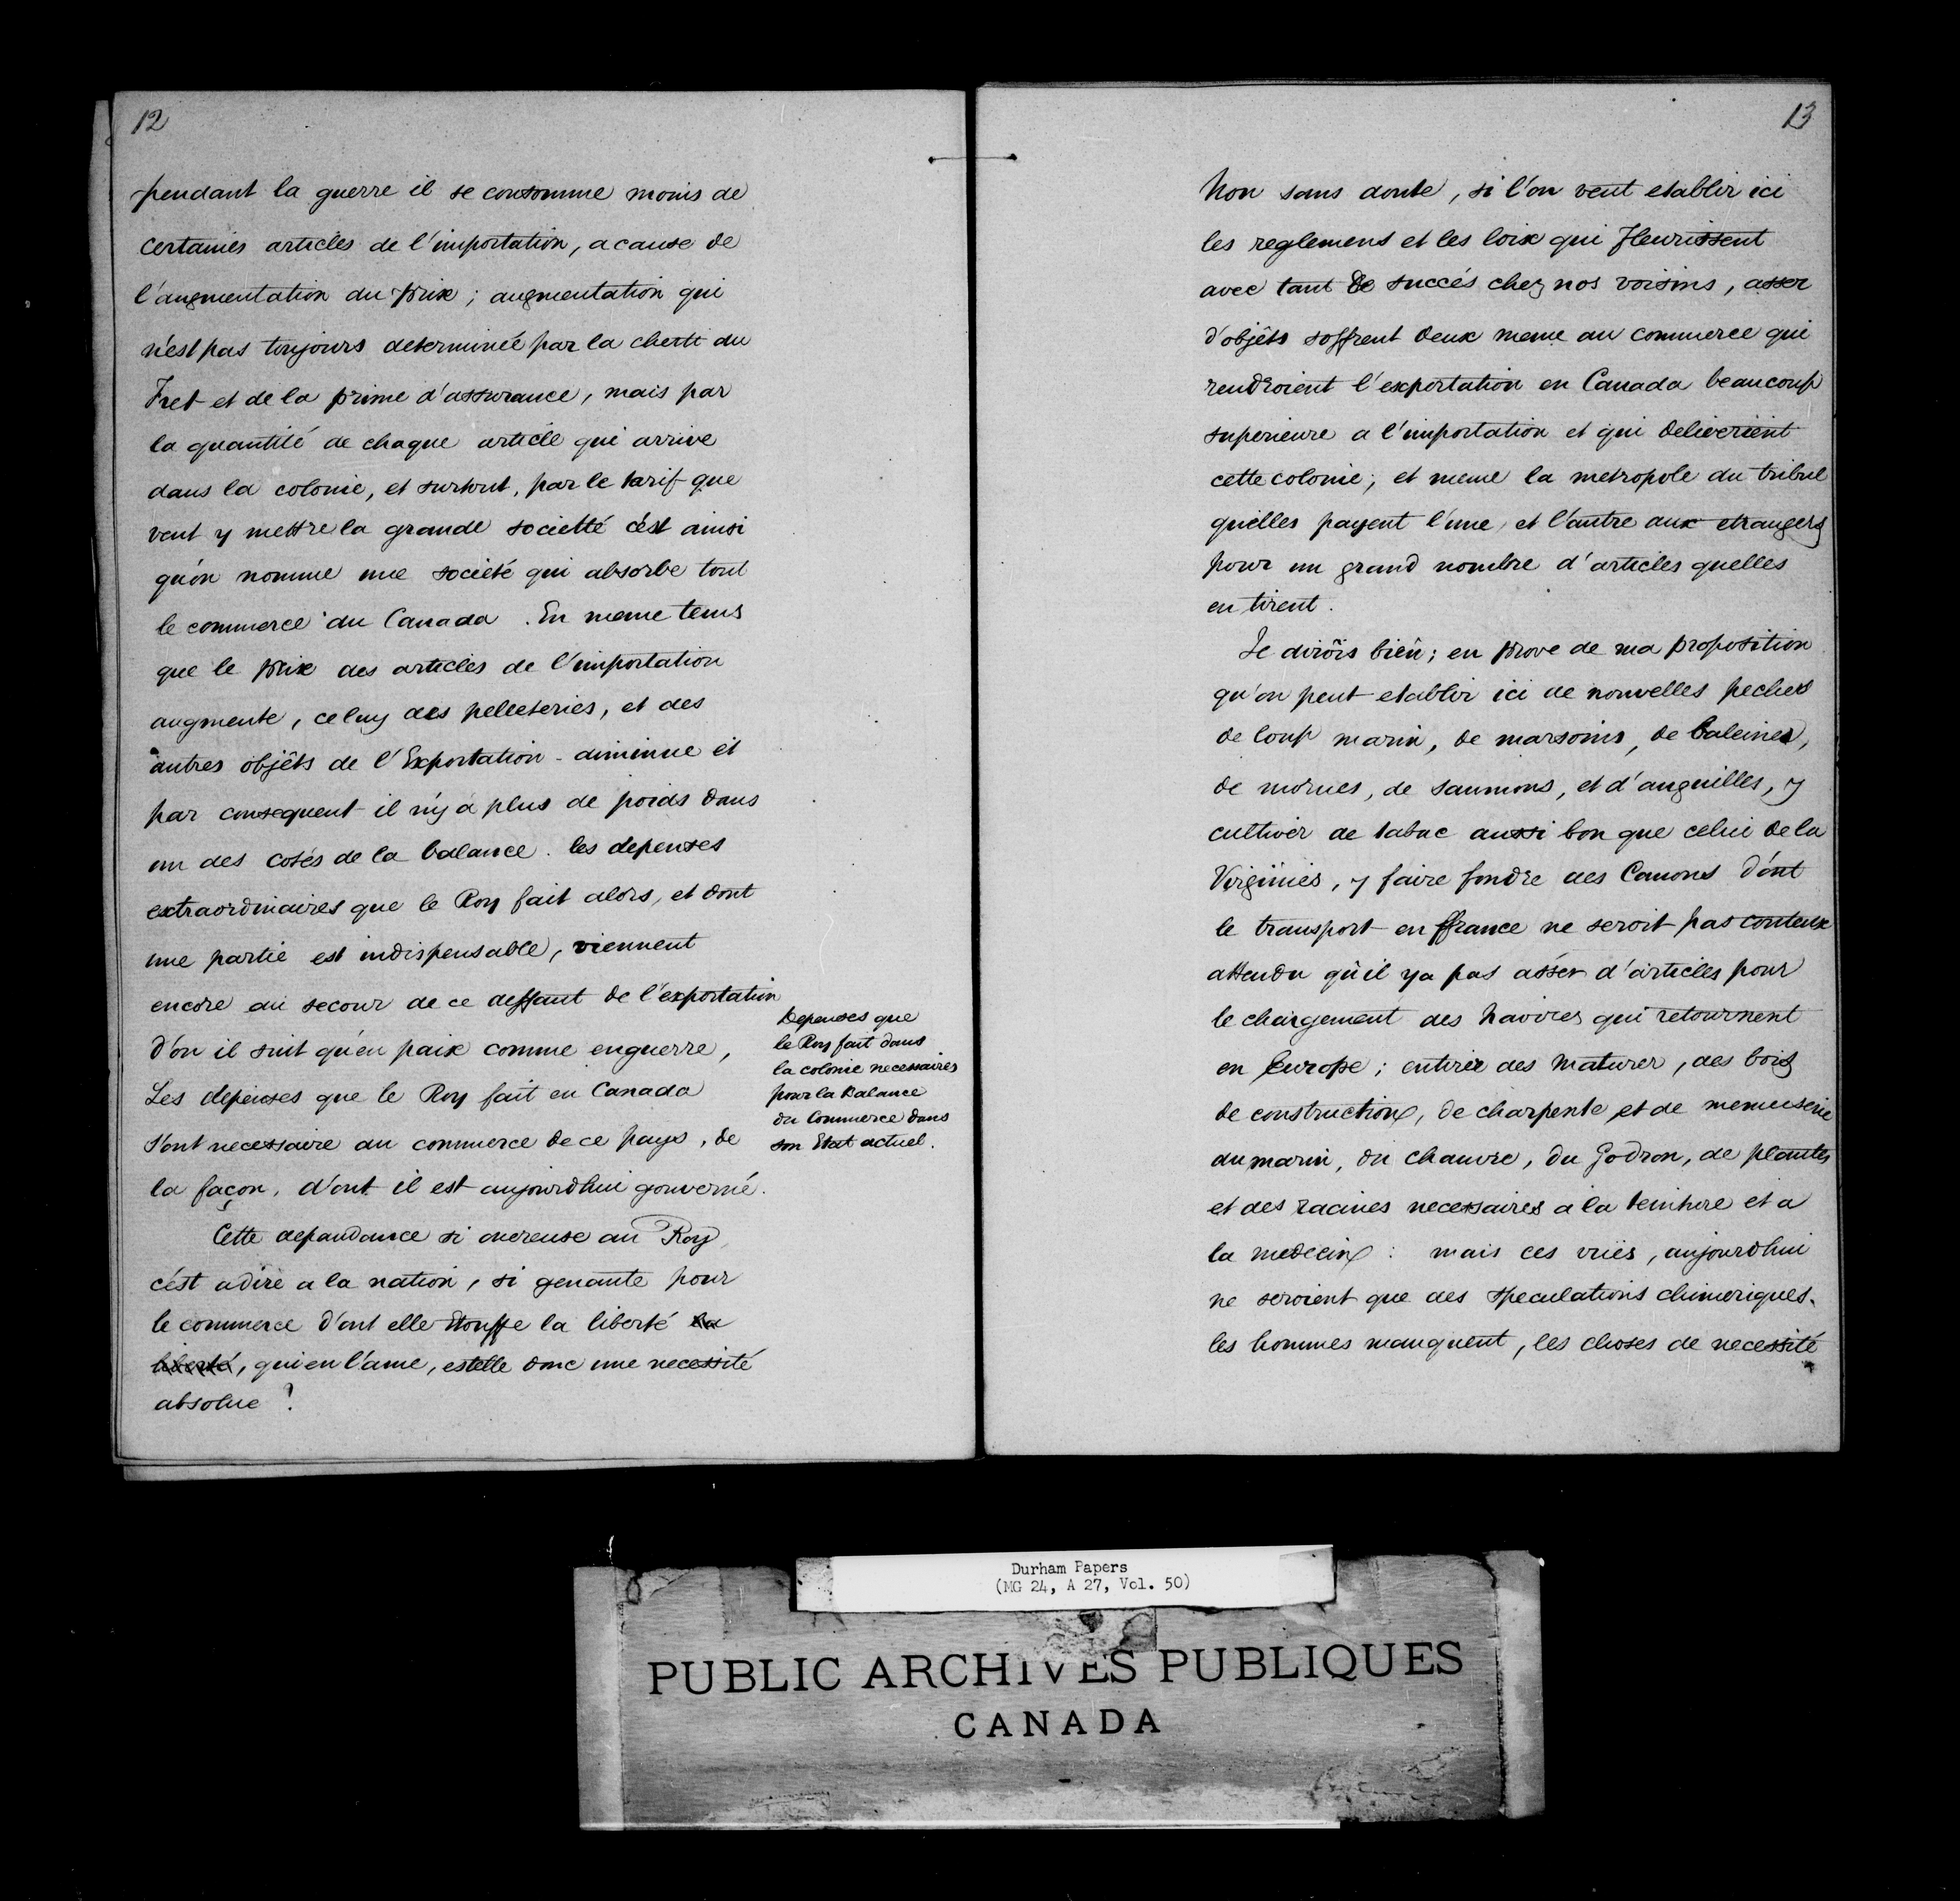 12
pendant la guerre il se consomme moins de
certaines articles de l'importation, a cause de
l'augmentation du prix; augmentation qui
n'est pas toujours determineé par la cherté du
Fret et de la prime d'assurance, mais par
la quantité de chaque article qui arrive
dans la colonie, et surtout, par le tarif que
veut y mettre la grande societté c'est ainsi
qu'on nomme une societé qui absorbe tout
le commerce du Canada. En meme tems
que le prix des articles de l'importation
augmente, celuy des pelleteries, et des
autres objêts de l'Exportation diminue et
par consequent il n'y a plus de poids dans
un des cotés de la balance. les depenses
extraordinaires que le Roy fait alors, et dont
une partie est indispensable, viennent
encore au secour de ce deffaut de l'exportation
d'ou il suit qu'en paix comme enguerre,
Les depenses que le Roy fait en Canada
Sont necessaire au commerce de ce pays, de
la façon, d'ont il est aujourdhui gouverné.
Depenses que
le Roy fait dans
la colonie necessaires
pour la Balance
du Commerce dans
son Etat actuel.
Cette depandance si onereuse au Roy,
c'est adire a la nation, si genante pour
le commerce d'ont elle Etouffe la liberté la
liberté, qui en l'ame, estelle donc une necessité
absolue?
13
Non sans doute, si l'on veut etablir ici
les reglemens et les loix qui fleurissent
avec tant de succés chez nos voisins, asser
d'objêts soffrent deux meme au commerce qui
rendroient l'exportation en Canada beaucoup
superieure a l'importation et qui deliverient
cette colonie; et meme la metropole du tribut
qu'elles payent l'une, et l'autre aux etrangers
pour un grand nombre d'articles quelles
en tirent.
Je dirois bien; en prove de ma proposition
qu'on peut etablir ici de nouvelles peches
de loup marin, de marsoins, de baleines,
de morues, de saumons, et d'anguilles, y
cultiver de tabac aussi bon que celui de la
Virginies, y faire fondre des Canons d'ont
le transport en ffrance ne seroit pas couteux
attendu qu'il y a pas assér d'articles pour
le chargement des navires qui retournent
en Europe; entirer des maturer, des bois
de construction, de charpente et de menuserie
du marin, du chanvre, du Godron, de plantes
et des racines necessaires a la teinture et a
la medecine: mais ces vuës, aujourdhui
ne seroient que des speculations chimeriques.
les hommes manquent, les choses de necessité
Durham Papers
(MG 24, A 27, Vol. 50)
PUBLIC ARCHIVES PUBLIQUES
CANADA